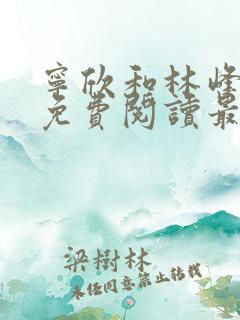 寧欣和林峰
免費閱讀最
梁樹林
未經同意禁止轉載